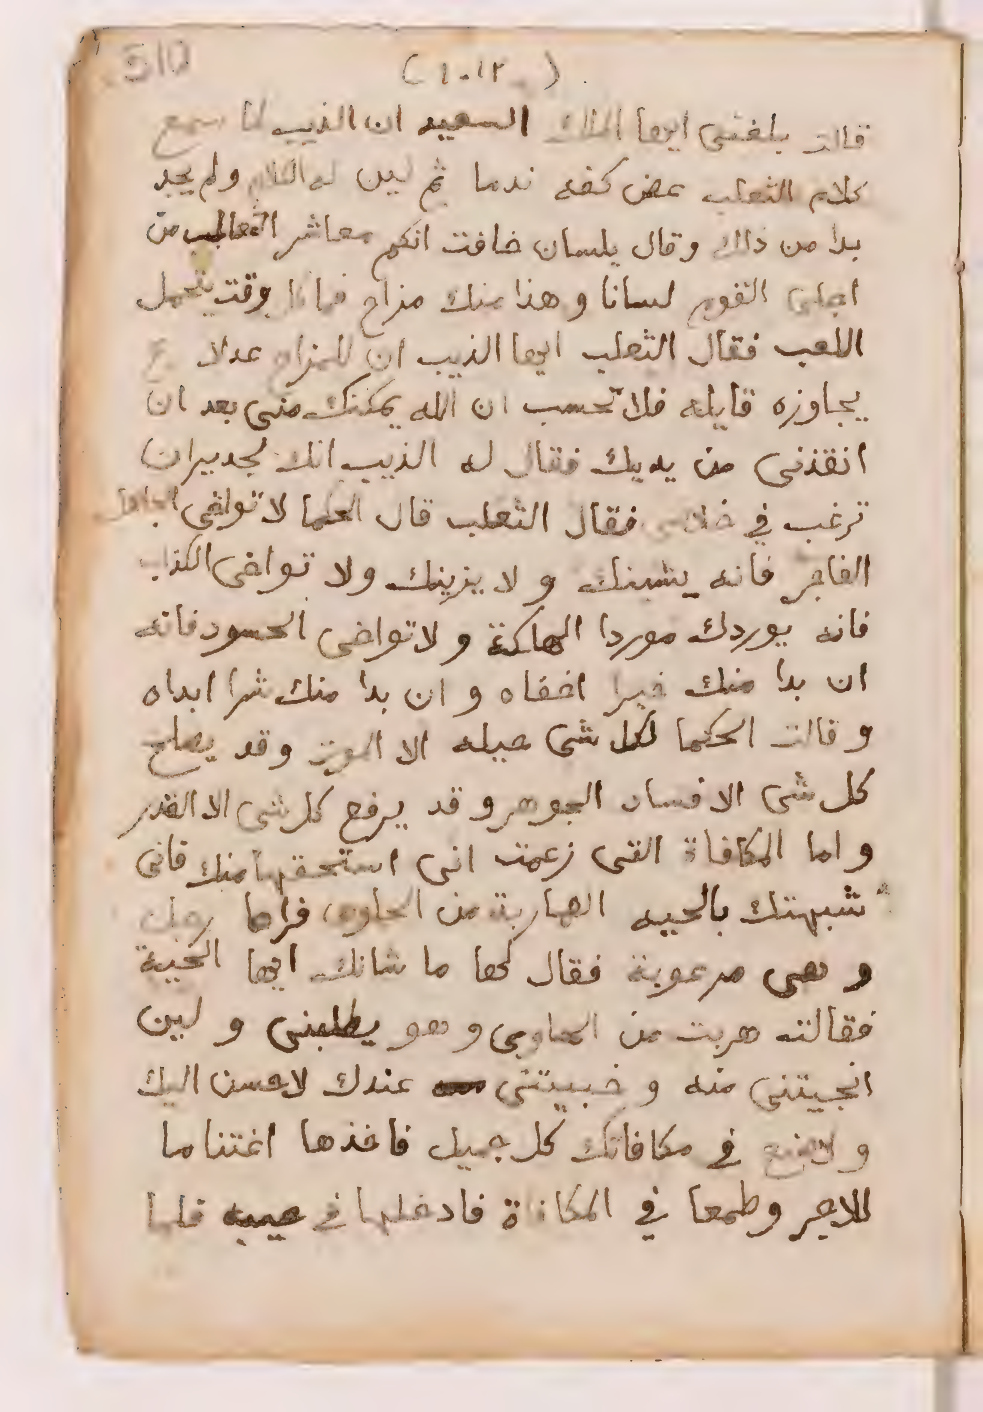 510
(١٠١٢)
قالت بلغنى ايها الملك السعيد ان الذيب لما سمع
كلام الثعلب عض كفه ندما ثم لين له الكلام ولم يجد
بدا من ذلك وقال بلسان خافت انكم معاشر الثعالب من
احلى القوم لسانا وهذا منك مزاح فما كل وقت يحمل
اللعب فقال الثعلب ايها الذيب ان للمزاح عدلا
يجاوزه قايله فلا تحسب ان الله يمكنك منى بعد ان
انقذنى من يديك فقال له الذيب انك لجدير ان
ترغب في خلاصى فقال الثعلب قال الحكما لا تواخى الجاهل
الفاجر فانه يشينك ولا يزينك ولا تواخى الكذاب
فانه يوردك موردا الهلكة ولا تواخى الحسود فانه
ان بدا منك خيرا اخفاه وان بدا منك شرا ابداه
وقالت الحكما لكل شى حيله الا الموت وقد يصلح
كل شى الا فساد الجوهر وقد يرفع كل شى الا القدر
واما المكافاة التى زعمت انى استحقها منك فانى
شبهتك بالحيه الهاربة من الحاوى فراها رجل
وهى مرعوبة فقال لها ما شانك ايها الحية
فقالت هربت من الحاوى وهو يطلبنى ولين
انجيتنى منه وخبيتنى عندك لاحسن اليك
ولاصنع في مكافاتك كل جميل فاخذها اغتناما
للاجر وطمعا في المكافاة فادخلها في جيبه فلما